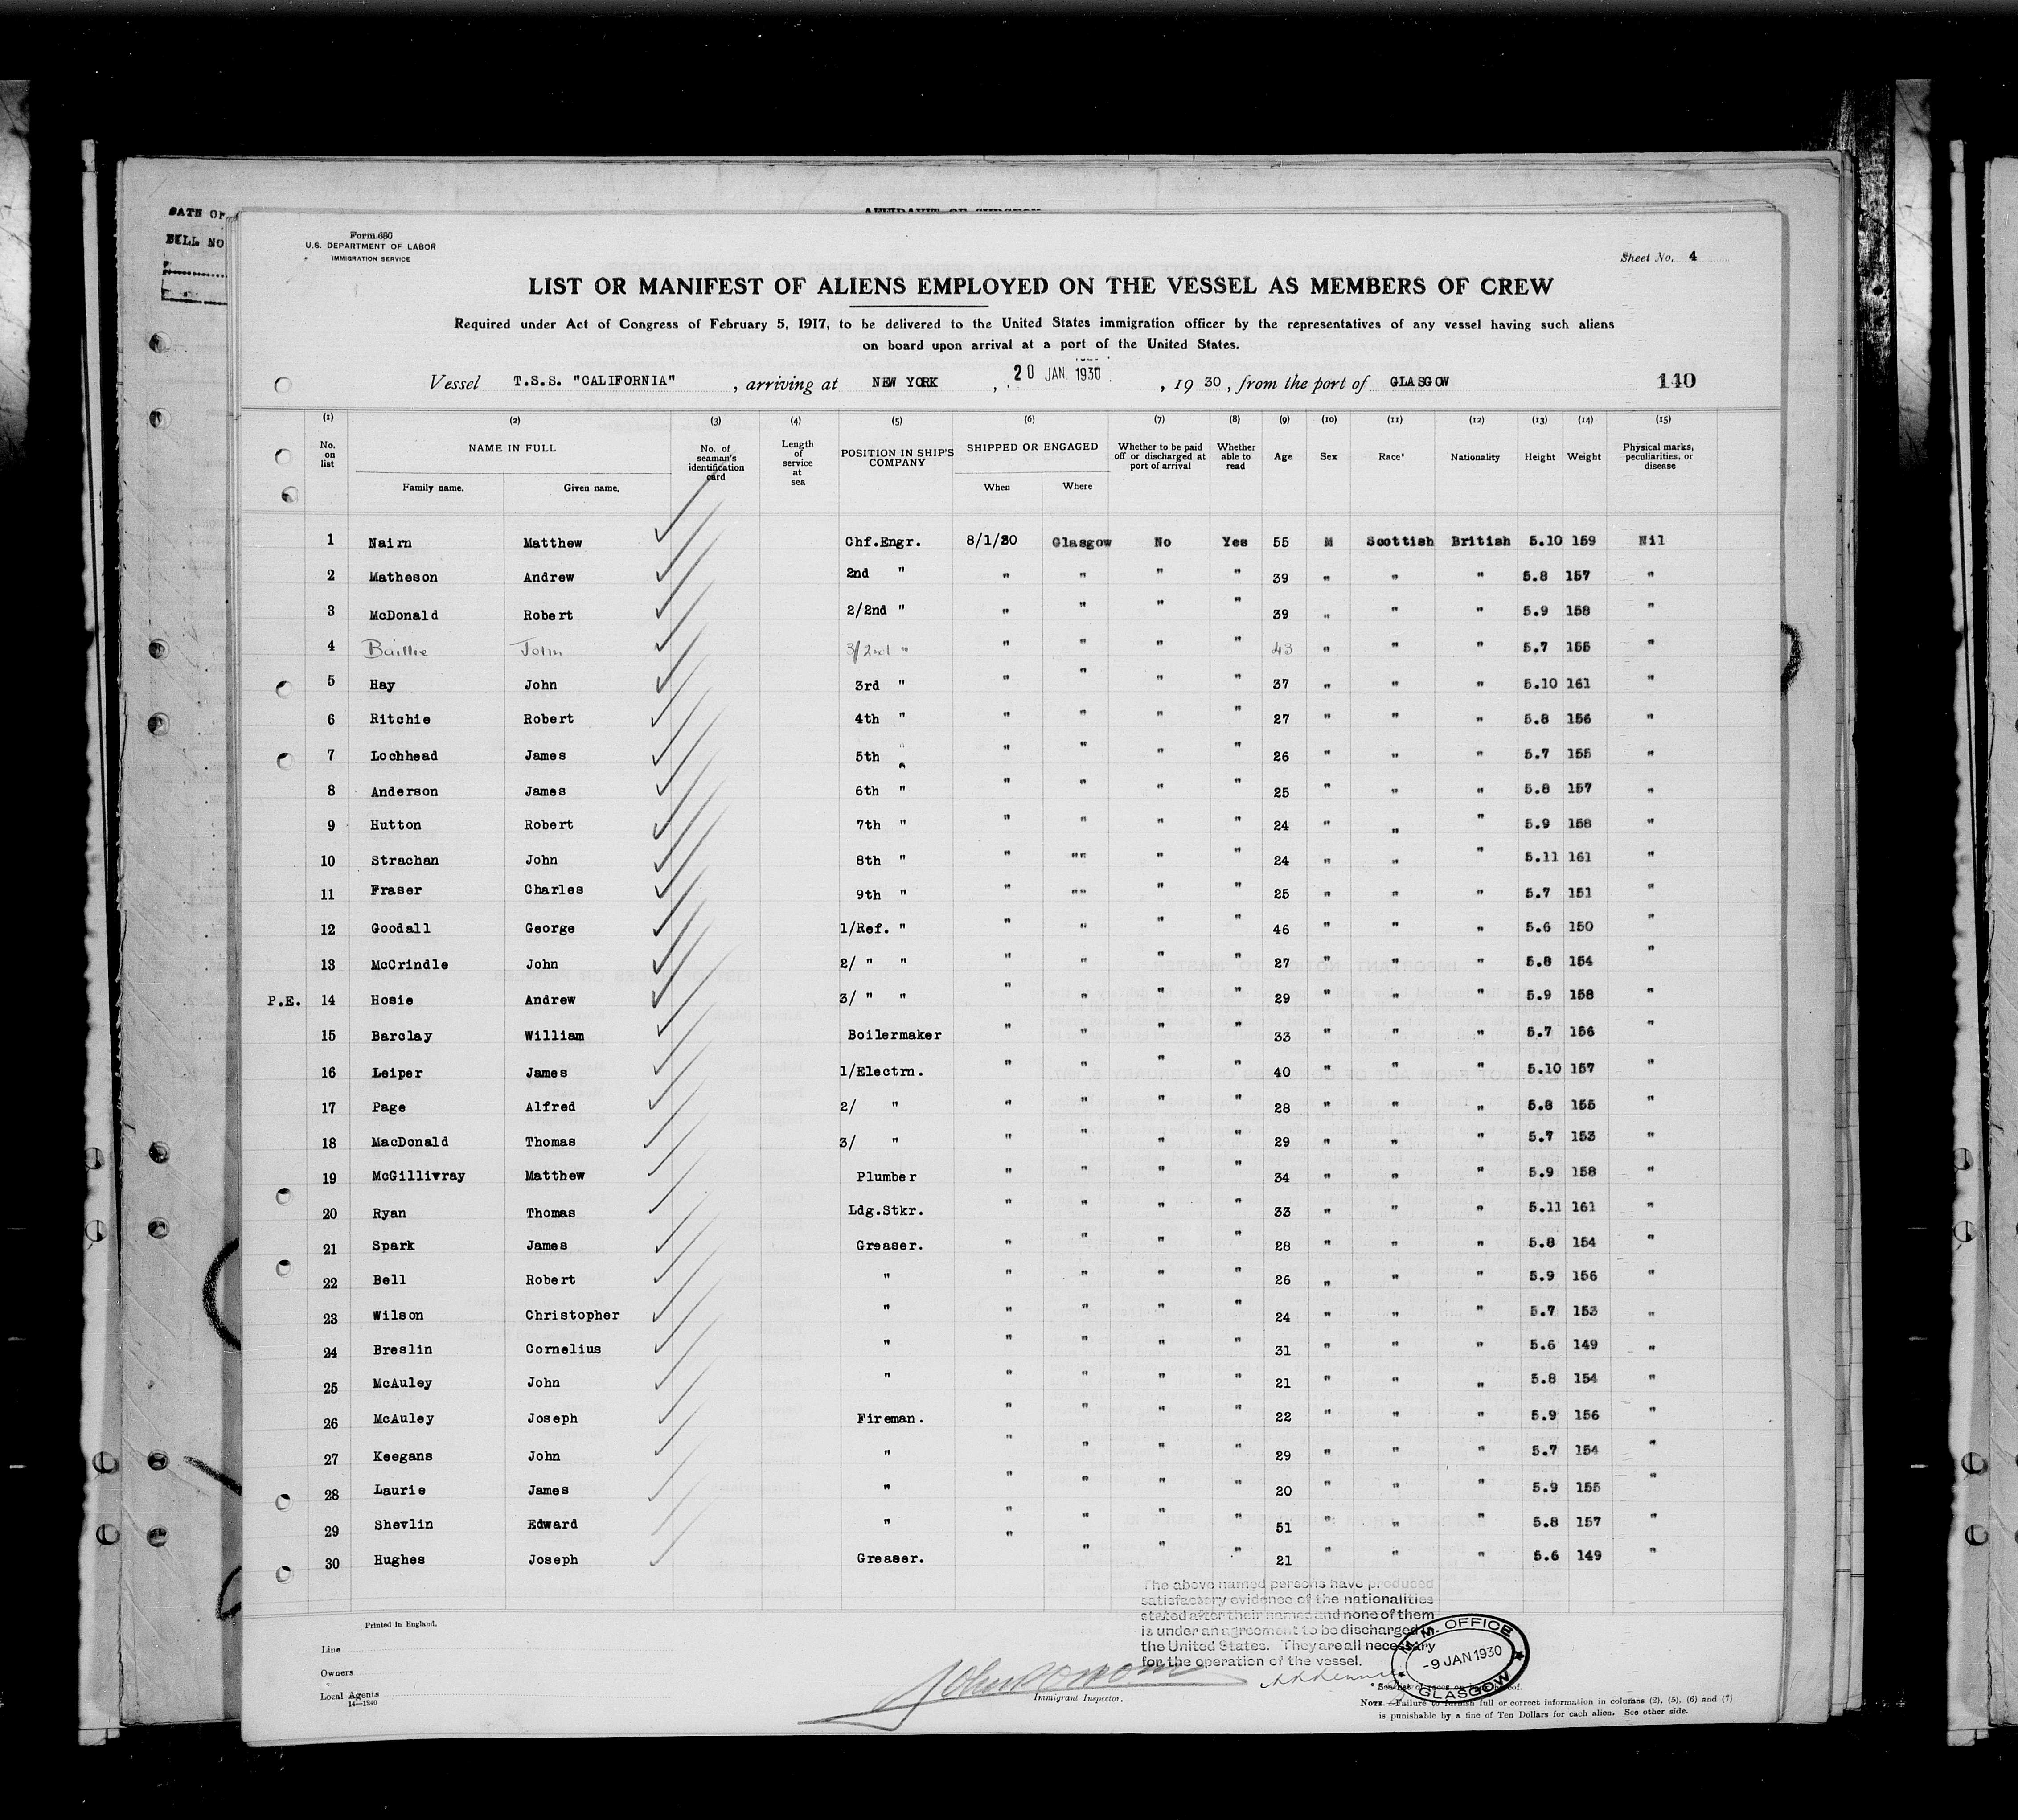 DATE OF
BILL NO
AFFIDAVIT OF SURGEON
Form 680
U.S. DEPARTMENT OF LABOR
IMMIGRATION SERVICE
Sheet No. 4
LIST OR MANIFEST OF ALIENS EMPLOYED ON THE VESSEL AS MEMBERS OF CREW
Required under Act of Congress of February 5, 1917, to be delivered to the United States immigration officer by the representatives of any vessel having such aliens
on board upon arrival at a port of the United States.
Vessel T.S.S. "CALIFORNIA", arriving at NEW YORK, 20 JAN 1930, 1930, from the port of GLASGOW 140
(1) (2) (3) (4) (5) (6) (7) (8) (9) (10) (11) (12) (13) (14) (15)
No. on list NAME IN FULL No. of seaman's identification card Length of service at sea POSITION IN SHIP'S COMPANY SHIPPED OR ENGAGED Whether to be paid off or discharged at port of arrival Whether able to read Age Sex Race* Nationality Height Weight Physical marks, peculiarities, or disease
Family name. Given name. When Where
1 Nairn Matthew Chf.Engr. 8/1/30 Glasgow No Yes 55 M Scottish British 5.10 159 Nil
2 Matheson Andrew 2nd " " " " " 39 " " " 5.8 157 "
3 McDonald Robert 2/2nd " " " " " 39 " " " 5.9 158 "
4 Baillie John 3/2nd " " " " " 43 " " " 5.7 155 "
5 Hay John 3rd " " " " " 37 " " " 5.10 161 "
6 Ritchie Robert 4th " " " " " 27 " " " 5.8 156 "
7 Lochhead James 5th " " " " " 26 " " " 5.7 155 "
8 Anderson James 6th " " " " " 25 " " " 5.8 157 "
9 Hutton Robert 7th " " " " " 24 " " " 5.9 158 "
10 Strachan John 8th " " "" " " 24 " " " 5.11 161 "
11 Fraser Charles 9th " " "" " " 25 " " " 5.7 151 "
12 Goodall George 1/Ref. " " " " " 46 " " " 5.6 150 "
13 McCrindle John 2/ " " " " " " 27 " " " 5.8 154 "
P.E. 14 Hosie Andrew 3/ " " " " " " 29 " " " 5.9 158 "
15 Barclay William Boilermaker " " " " 33 " " " 5.7 156 "
16 Leiper James 1/Electrn. " " " " 40 " " " 5.10 157 "
17 Page Alfred 2/ " " " " " 28 " " " 5.8 155 "
18 MacDonald Thomas 3/ " " " " " 29 " " " 5.7 153 "
19 McGillivray Matthew Plumber " " " " 34 " " " 5.9 158 "
20 Ryan Thomas Ldg.Stkr. " " " " 33 " " " 5.11 161 "
21 Spark James Greaser. " " " " 28 " " " 5.8 154 "
22 Bell Robert " " " " " 26 " " " 5.9 156 "
23 Wilson Christopher " " " " " 24 " " " 5.7 153 "
24 Breslin Cornelius " " " " " 31 " " " 5.6 149 "
25 McAuley John " " " " " 21 " " " 5.8 154 "
26 McAuley Joseph Fireman. " " " " 22 " " " 5.9 156 "
27 Keegans John " " " " " 29 " " " 5.7 154 "
28 Laurie James " " " " " 20 " " " 5.9 155 "
29 Shevlin Edward " " " " " 51 " " " 5.8 157 "
30 Hughes Joseph Greaser. " " " " 21 " " " 5.6 149 "
The above named persons have produced
satisfactory evidence of the nationalities
stated after their names and none of them
is under an agreement to be discharged
the United States. They are all necessary
for the operation of the vessel.
M.M. OFFICE
-9 JAN 1930
GLASGOW
Printed in England.
Line
Owners
Local Agents
14-1240
Immigrant Inspector.
* See list of races on
NOTE.—Failure to furnish full or correct information in columns (2), (5), (6) and (7)
is punishable by a fine of Ten Dollars for each alien. See other side.